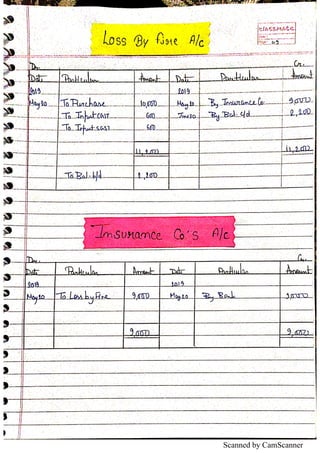 Loss By Fire A/c
CLASSMATE
Dr. Cr.
Date Particular Amount Date Particular Amount
2019 2019
May 20 To Purchase 10,000 May 20 By Insurance Co. 9,000
To Input CGST 600 June 20 By Bal. c/d 2,200
To Input SGST 600
11,200 11,200
To Bal. b/d 2,200
Insurance Co's A/c
Dr. Cr.
Date Particular Amount Date Particular Amount
2019 2019
May 20 To Loss by Fire 9,000 May 20 By Bank 9,000
9,000 9,000
Scanned by CamScanner